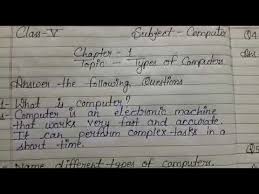 Class-V Subject-Computer
Chapter-1
Topic - Types of Computers
Answer the following Questions
1- What is computer?
s- Computer is an electronic machine
that works very fast and accurate.
It can perform complex tasks in a
short time.
Name different types of computers.
Q4
Q5